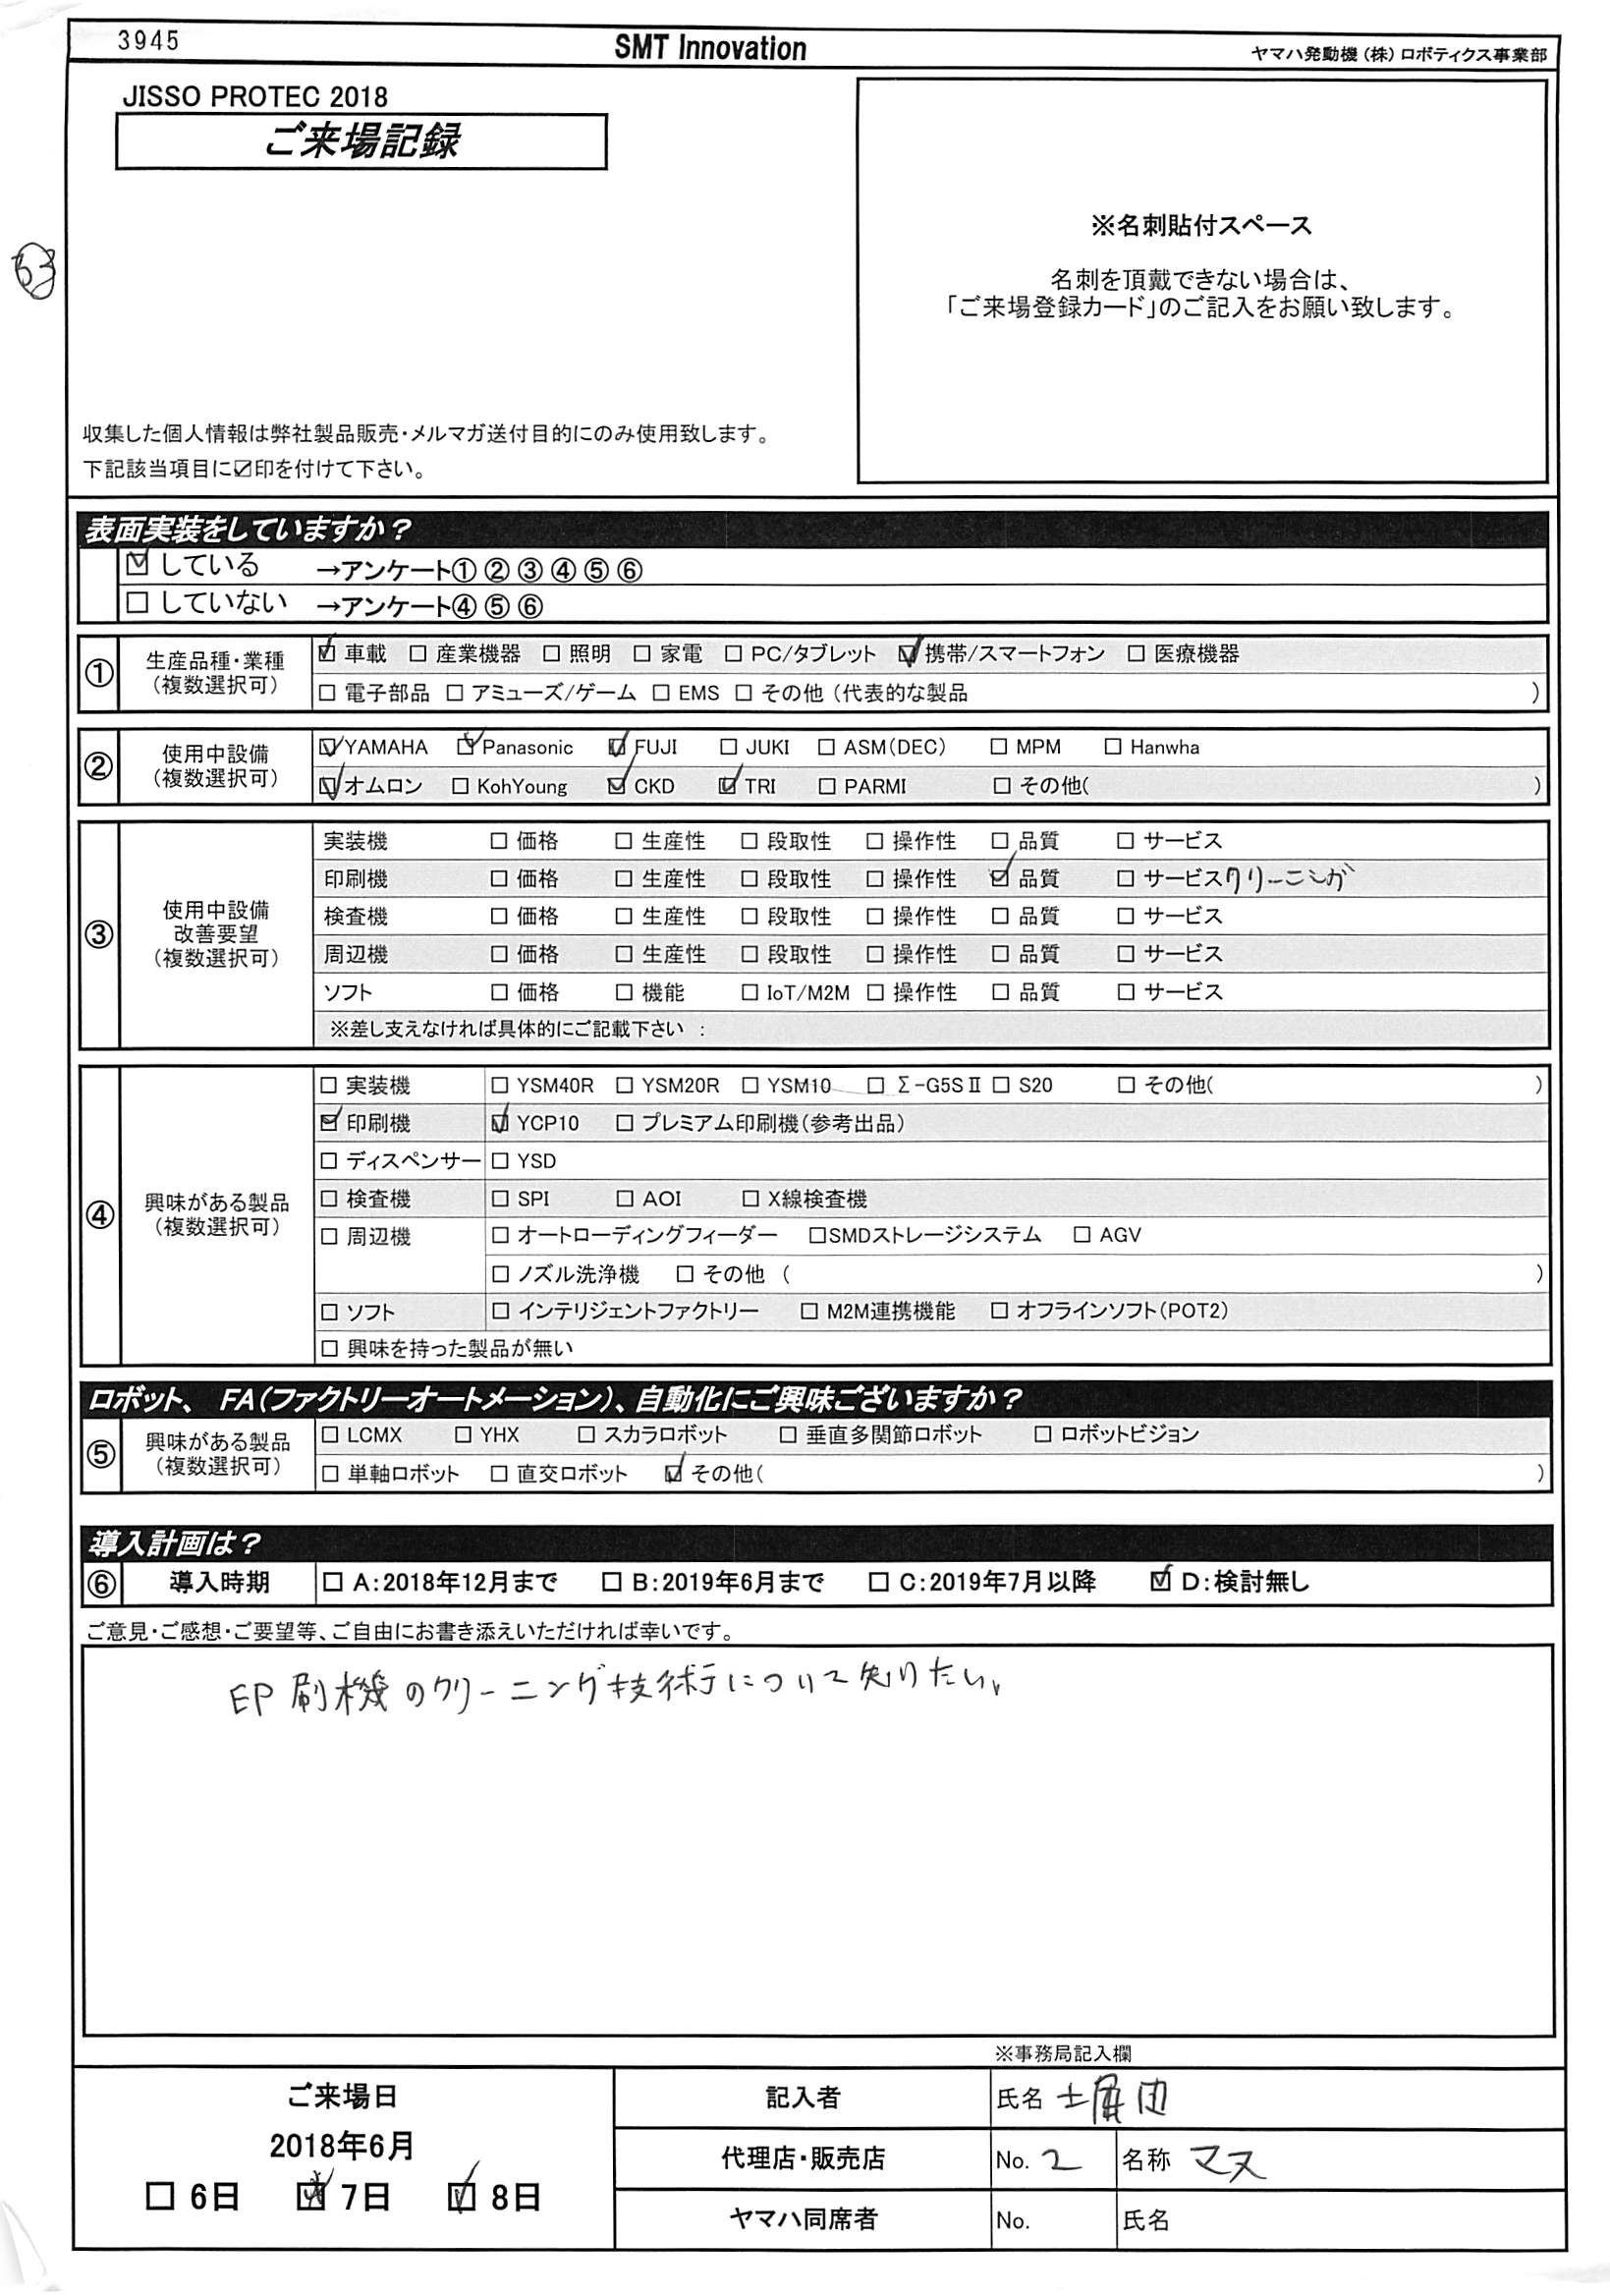 3945 SMT Innovation ヤマハ発動機(株)ロボティクス事業部
JISSO PROTEC 2018
ご来場記録
※名刺貼付スペース
名刺を頂戴できない場合は、
「ご来場登録カード」のご記入をお願い致します。
収集した個人情報は弊社製品販売・メルマガ送付目的にのみ使用致します。
下記該当項目に☑印を付けて下さい。
表面実装をしていますか？
☑ している →アンケート① ② ③ ④ ⑤ ⑥
□ していない →アンケート④ ⑤ ⑥
① 生産品種・業種
(複数選択可)
☑ 車載 □ 産業機器 □ 照明 □ 家電 □ PC/タブレット ☑ 携帯/スマートフォン □ 医療機器
□ 電子部品 □ アミューズ/ゲーム □ EMS □ その他 (代表的な製品 )
② 使用中設備
(複数選択可)
☑ YAMAHA ☑ Panasonic ☑ FUJI □ JUKI □ ASM(DEC) □ MPM □ Hanwha
☑ オムロン □ KohYoung ☑ CKD ☑ TRI □ PARMI □ その他( )
③ 使用中設備
改善要望
(複数選択可)
実装機 □ 価格 □ 生産性 □ 段取性 □ 操作性 □ 品質 □ サービス
印刷機 □ 価格 □ 生産性 □ 段取性 □ 操作性 ☑ 品質 □ サービス クリーニング
検査機 □ 価格 □ 生産性 □ 段取性 □ 操作性 □ 品質 □ サービス
周辺機 □ 価格 □ 生産性 □ 段取性 □ 操作性 □ 品質 □ サービス
ソフト □ 価格 □ 機能 □ IoT/M2M □ 操作性 □ 品質 □ サービス
※差し支えなければ具体的にご記載下さい ：
④ 興味がある製品
(複数選択可)
□ 実装機 □ YSM40R □ YSM20R □ YSM10 □ Σ-G5SⅡ □ S20 □ その他( )
☑ 印刷機 ☑ YCP10 □ プレミアム印刷機(参考出品)
□ ディスペンサー □ YSD
□ 検査機 □ SPI □ AOI □ X線検査機
□ 周辺機 □ オートローディングフィーダー □SMDストレージシステム □ AGV
□ ノズル洗浄機 □ その他 ( )
□ ソフト □ インテリジェントファクトリー □ M2M連携機能 □ オフラインソフト(POT2)
□ 興味を持った製品が無い
ロボット、FA(ファクトリーオートメーション)、自動化にご興味ございますか？
⑤ 興味がある製品
(複数選択可)
□ LCMX □ YHX □ スカラロボット □ 垂直多関節ロボット □ ロボットビジョン
□ 単軸ロボット □ 直交ロボット ☑ その他( )
導入計画は？
⑥ 導入時期 □ A:2018年12月まで □ B:2019年6月まで □ C:2019年7月以降 ☑ D:検討無し
ご意見・ご感想・ご要望等、ご自由にお書き添えいただければ幸いです。
印刷機のクリーニング技術について知りたい。
※事務局記入欄
ご来場日
2018年6月
□ 6日 ☑ 7日 ☑ 8日
記入者 氏名
代理店・販売店 No. 2 名称 マス
ヤマハ同席者 No. 氏名